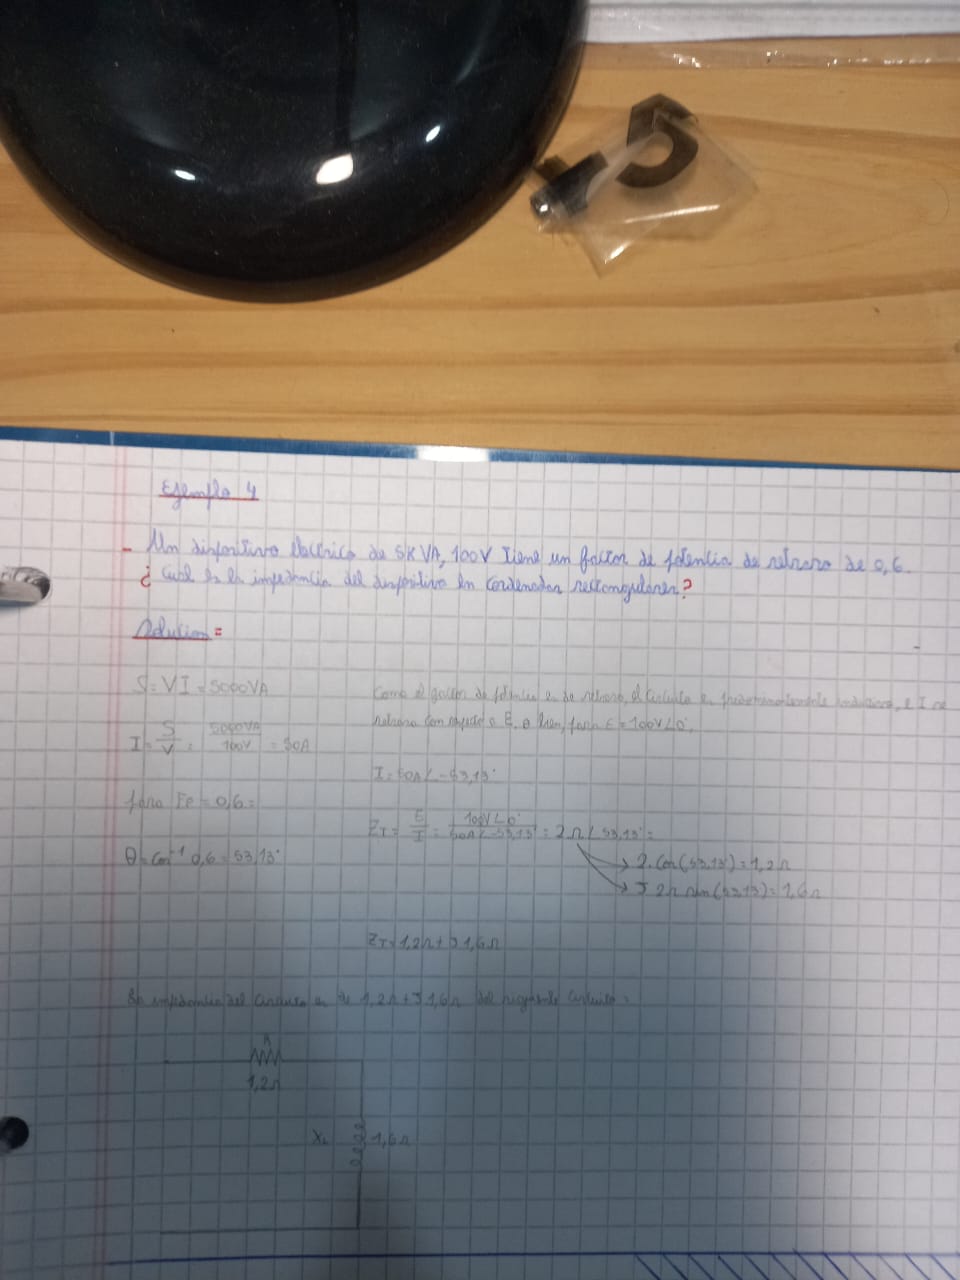 Ejemplo 4
- Un dispositivo électrico de 5KVA, 100V tiene un factor de potencia de retraso de 0,6.
¿ Cuál es la impedancia del dispositivo en cordenadas rectangulares?
Solucion =
S = VI = 5000VA
Como el factor de potencia es de retraso, el circuito es predominantemente inductivo, e I se
retrasa con respecto a E. o bien, para E = 100V∠0°,
I = S/V = 5000VA/100V = 50A
I = 50A ∠-53,13°
para Fp = 0,6 =
ZT = E/I = 100V∠0°/50A∠-53,13° = 2Ω ∠53,13° =
θ = cos⁻¹ 0,6 = 53,13°
→ 2.cos(53,13°) = 1,2Ω
→ J 2Ω sen(53,13) = 1,6Ω
ZT = 1,2Ω + J 1,6Ω
La impedancia del circuito es de 1,2Ω + J 1,6Ω del siguiente circuito =
R
1,2Ω
XL 1,6Ω